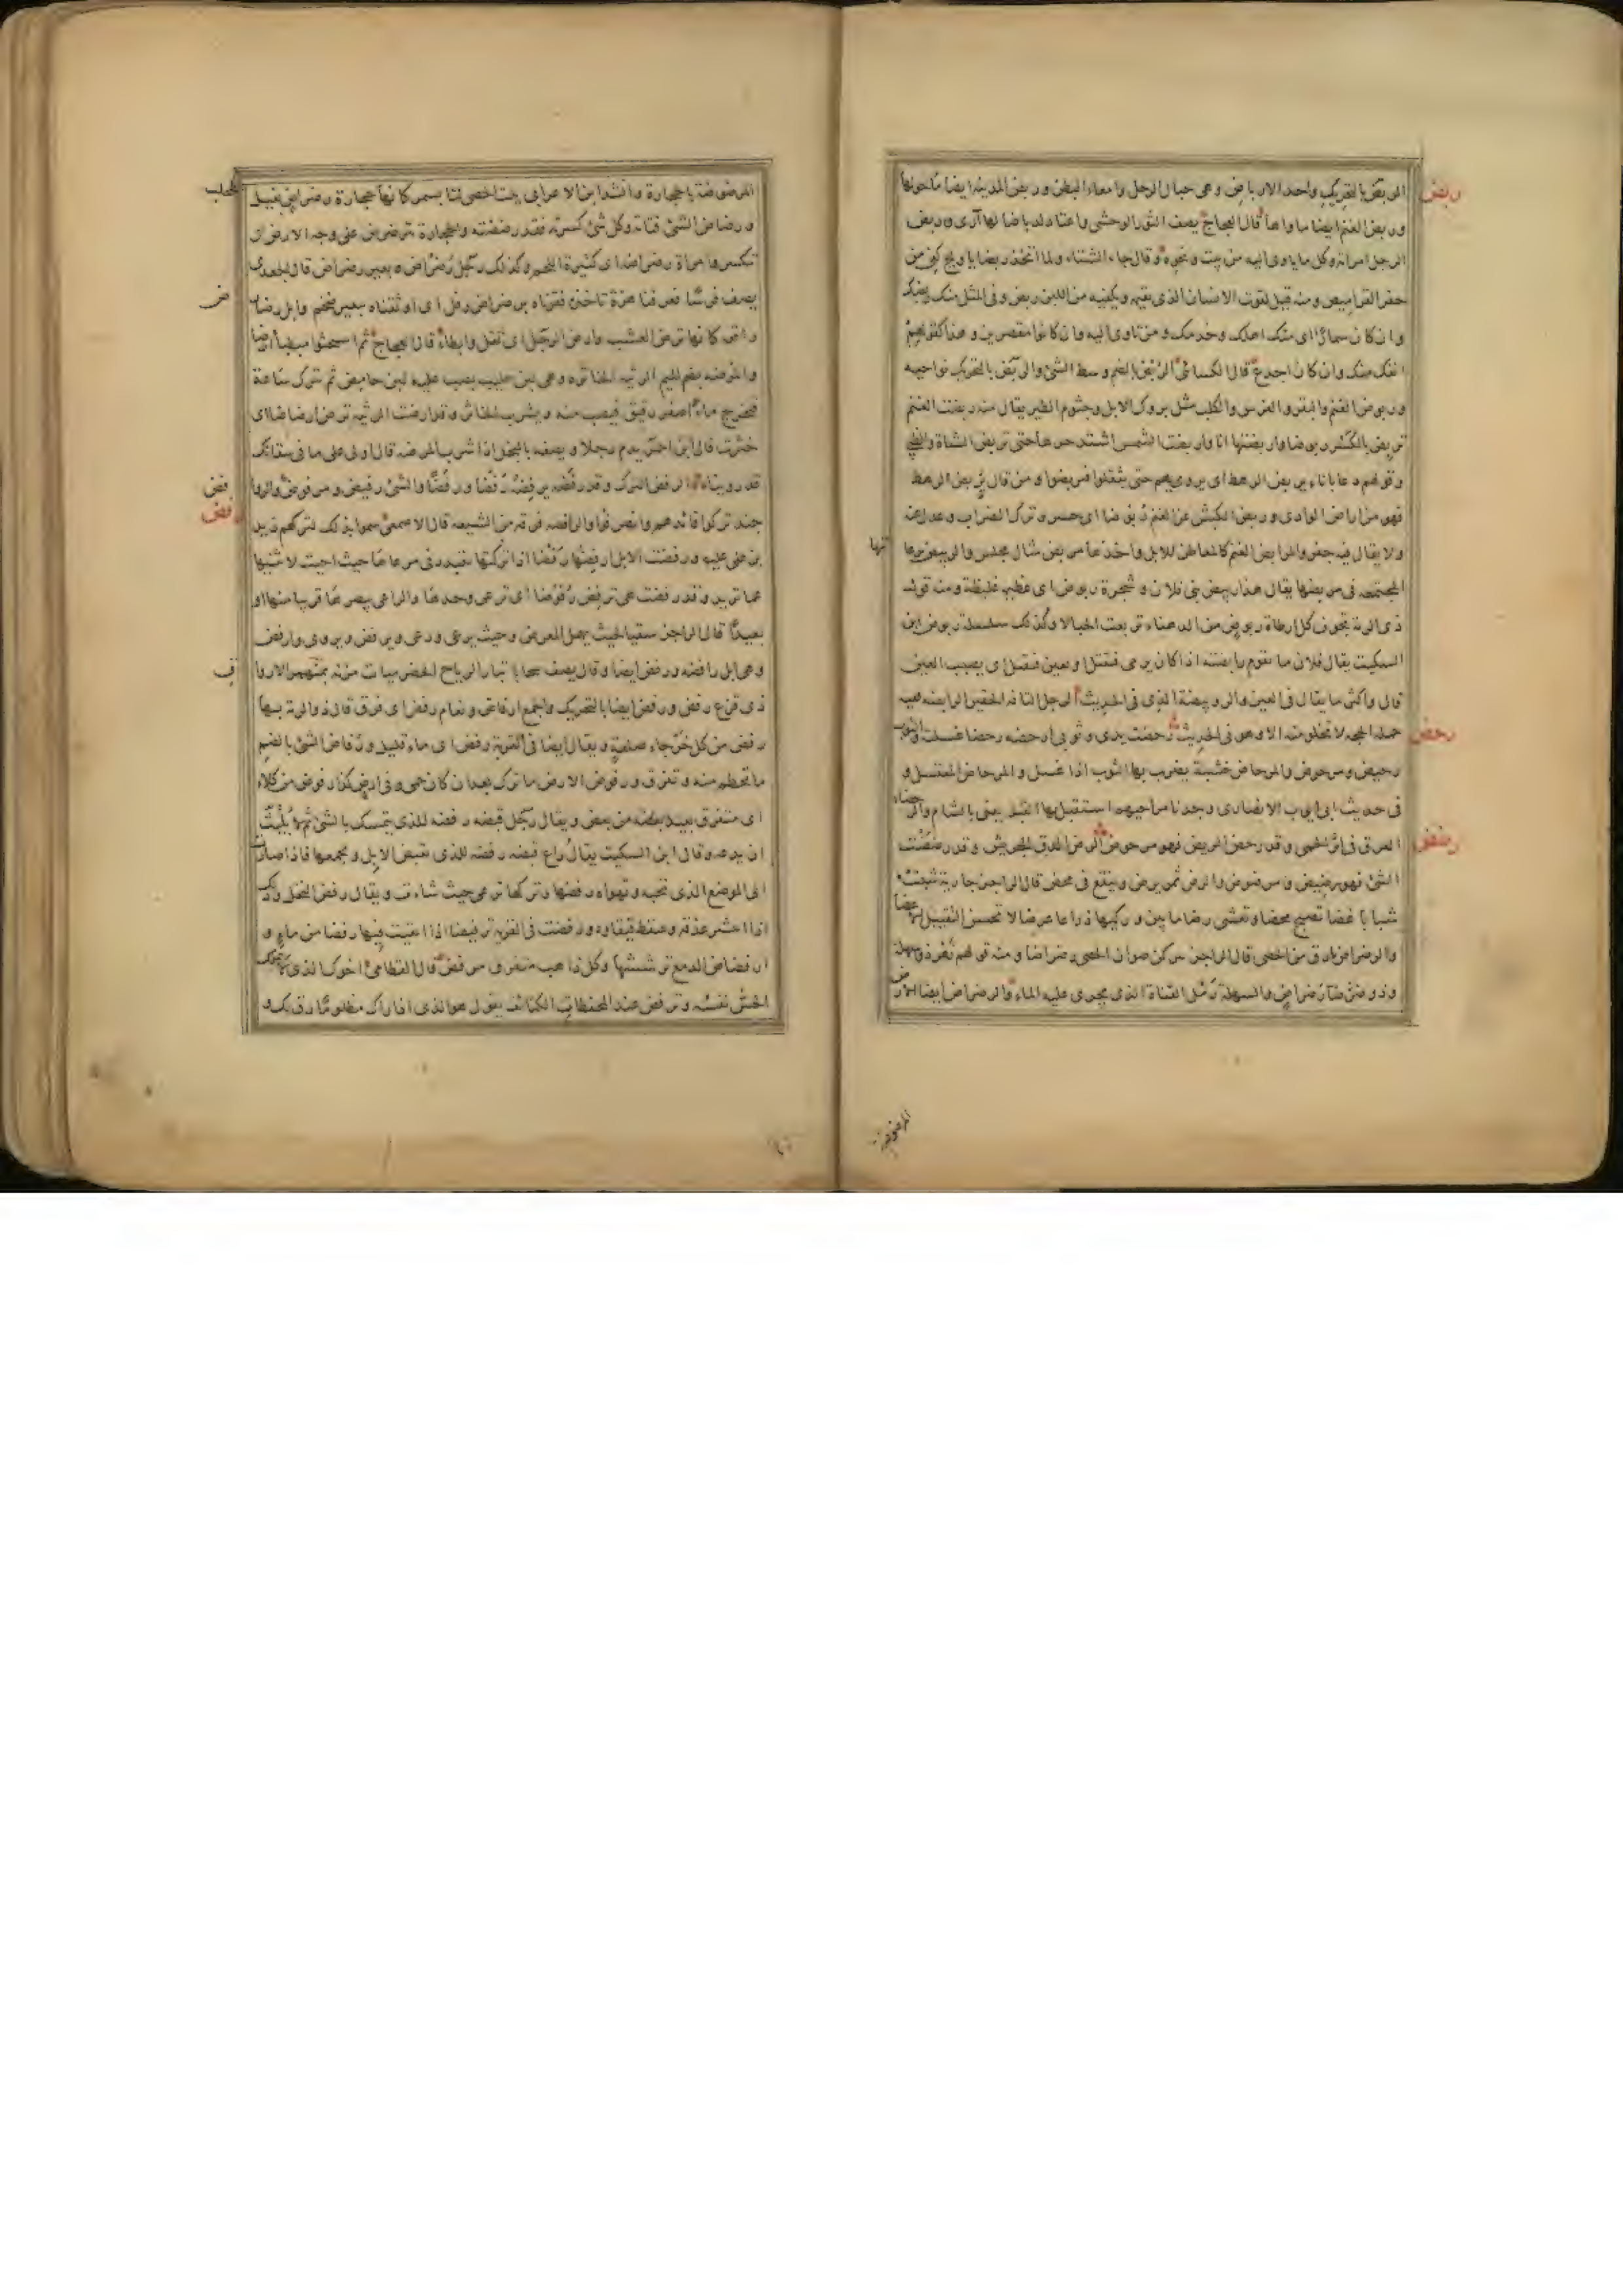 ربض
الربض بالتحريك واحد الارباض وهى حبال الرحل وامعاء البطن وربض المدينة ايضا ماحولها
وربض الغنم ايضا ماواها قال العجاج يصف الثور الوحشى واعتاد ارباضا لها آرى وربض
الرجل امراته وكل ماياوى اليه من بيت ونحوه وقال جاء الشتاء ولما اتخذ ربضا ياويح كفى من
حفر القراميص ومنه قيل لقوت الانسان الذى يقيمه ويكفيه من اللبن ربض وفى المثل منك ربضك
وان كان سمارا اى منك اهلك وخدمك ومن تاوى اليه وان كانوا مقصرين وهذا كقولهم
انفك منك وان كان اجدع قال الكسائى الربض بالضم وسط الشئ والربض بالتحريك نواحيه
وربوض الغنم والبقر والفرس والكلب مثل بروك الابل وجثوم الطير يقال منه ربضت الغنم
تربض بالكسر ربوضا واربضتها انا واربضت الشمس اشتد حرها حتى تربض الشاة والظبى
وقولهم دعا باناء يربض الرهط اى يرويهم حتى يثقلوا فيربضوا ومن قال يريض الرهط
فهو من اراض الوادى وربض الكبش عن الغنم ربوضا اى حسر وترك الضراب وعدل عنه
ولا يقال فيه جفر والمرابض للغنم كالمعاطن للابل واحدها مربض مثال مجلس والربيض برعاتها
المجتمعة فى مربضها يقال هذا ربيض بنى فلان وشجرة ربوض اى عظيمة غليظة ومنه قول
ذى الرمة تجوف كل ارطاة ربوض من الدهناء تربعت الحبالا وكذلك سلسلة ربوض ابن
السكيت يقال فلان ما تقوم رابضته اذا كان يرمى فيقتل او يعين فيقتل اى يصيب بالعين
قال واكثر ما يقال فى العين والرويبضة الذى فى الحديث الرجل التافه الحقير الرابضة بقية
حملة الحجة لا تخلو منه الارض وهو فى الحديث رحضت يدى وثوبى ارحضه رحضا غسلته والثوب
رحض
رحيض ومرحوض والمرحاض خشبة يضرب بها الثوب اذا غسل والمرحاض المغتسل و
فى حديث ابى ايوب الانصارى وجدنا مراحيضهم استقبل بها القبلة يعنى بالشام والرحضاء
العرق فى اثر الحمى وقد رحض المريض فهو مرحوض الرض الدق الجريش وقد رضضت
رضض
الشئ فهو رضيض ومرضوض والرض تمر يرض وينقع فى محض قال الراجز جارية شبت
شبابا غضا تصبح محضا وتعشى رضا ما بين وركيها ذراعا عرضا لا تحسن التقبيل الا عضا
والرضراض ما دق من الحصى قال الراجز يتركن صوان الحصى رضراضا ومنه قولهم نهر ذو سهلة
وذو رضراض والسهلة رمل القناة الذى يجرى عليه الماء والرضراض ايضا الارض
المرضوضة
المرضوضة بالحجارة وانشد ابن الاعرابى يلت الحصى لتا بسمر كانها حجارة رضراض بغيل مطحلب
ورضاض الشئ فتاته وكل شئ كسرته فقد رضضته والحجارة تترضرض على وجه الارض اى
تتكسر وامراة رضراضة اى كثيرة اللحم وكذلك رجل رضراض وبعير رضراض قال الجعدى
يصف فرسا فعرفنا هزة تاخذه فقرناه برضراض رفل اى اوثقناه ببعير ضخم وابل رضارض
راتعة كانها ترض العشب وارض الرجل اى ثقل وابطا قال العجاج ثم استحثوا مبطئا ارضا
والمرضة بضم الميم الرثيئة الخاثرة وهى لبن حليب يصب عليه لبن حامض ثم يترك ساعة
فيخرج ماء اصفر رقيق فيصب منه ويشرب الخاثر وقد ارضت الرثيئة ترض ارضاضا اى
خثرت قال ابن احمر يذم رجلا ويصفه بالبخل اذا شرب المرضة قال اوكى على ما فى سقائك
قد روينا الرفض الترك وقد رفضه يرفضه رفضا ورفضا والشئ رفيض ومرفوض والروافض
رفض
جند تركوا قائدهم وانصرفوا والرافضة فرقة من الشيعة قال الاصمعى سموا بذلك لتركهم زيد
بن على عليه ورفضت الابل ارفضها رفضا اذا تركتها تبدد فى مرعاها حيث احبت لا تثنيها
عما تريد وقد رفضت هى ترفض رفوضا اى ترعى وحدها والراعى يبصرها قريبا منها او
بعيدا قال الراجز سقيا لحيث يهمل المعرض وحيث يرعى ورعى ويرفض ويروى وارفض
وهى ابل رافضة ورفض ايضا وقال يصف سحابا تبارى الرياح الحضرميات مزنه بمنهمر الارواق
ذى قزع رفض ورفض ايضا بالتحريك والجمع ارفاض ونعام رفض اى فرق قال ذو الرمة بها
رفض من كل خرجاء صعلة ويقال ايضا فى القربة رفض اى ماء قليل ورفاض الشئ بالضم
ما تحطم منه وتفرق ورفوض الارض ما ترك بعد ان كان حمى وفى ارض كذا رفوض من كلاء
اى متفرق بعيد بعضه من بعض ويقال رجل قبضة رفضة للذى يتمسك بالشئ ثم لا يلبث
ان يدعه وقال ابن السكيت يقال راع قبضة رفضة للذى يقبض الابل ويجمعها فاذا صارت
الى الموضع الذى تحبه وتهواه رفضها وتركها ترعى حيث شاءت ويقال رفض النخل وذلك
اذا انتشر عذقه وسقط قيقاؤه ورفضت فى القربة ترفيضا اذا ابقيت فيها رفضا من ماء و
ارفضاض الدمع ترششها وكل ذاهب متفرق مرفض قال القطامى اخوك الذى لا تملك
الحس نفسه وترفض عند المحفظات الكتائف يقول هو الذى اذا راك مظلوما رق لك و